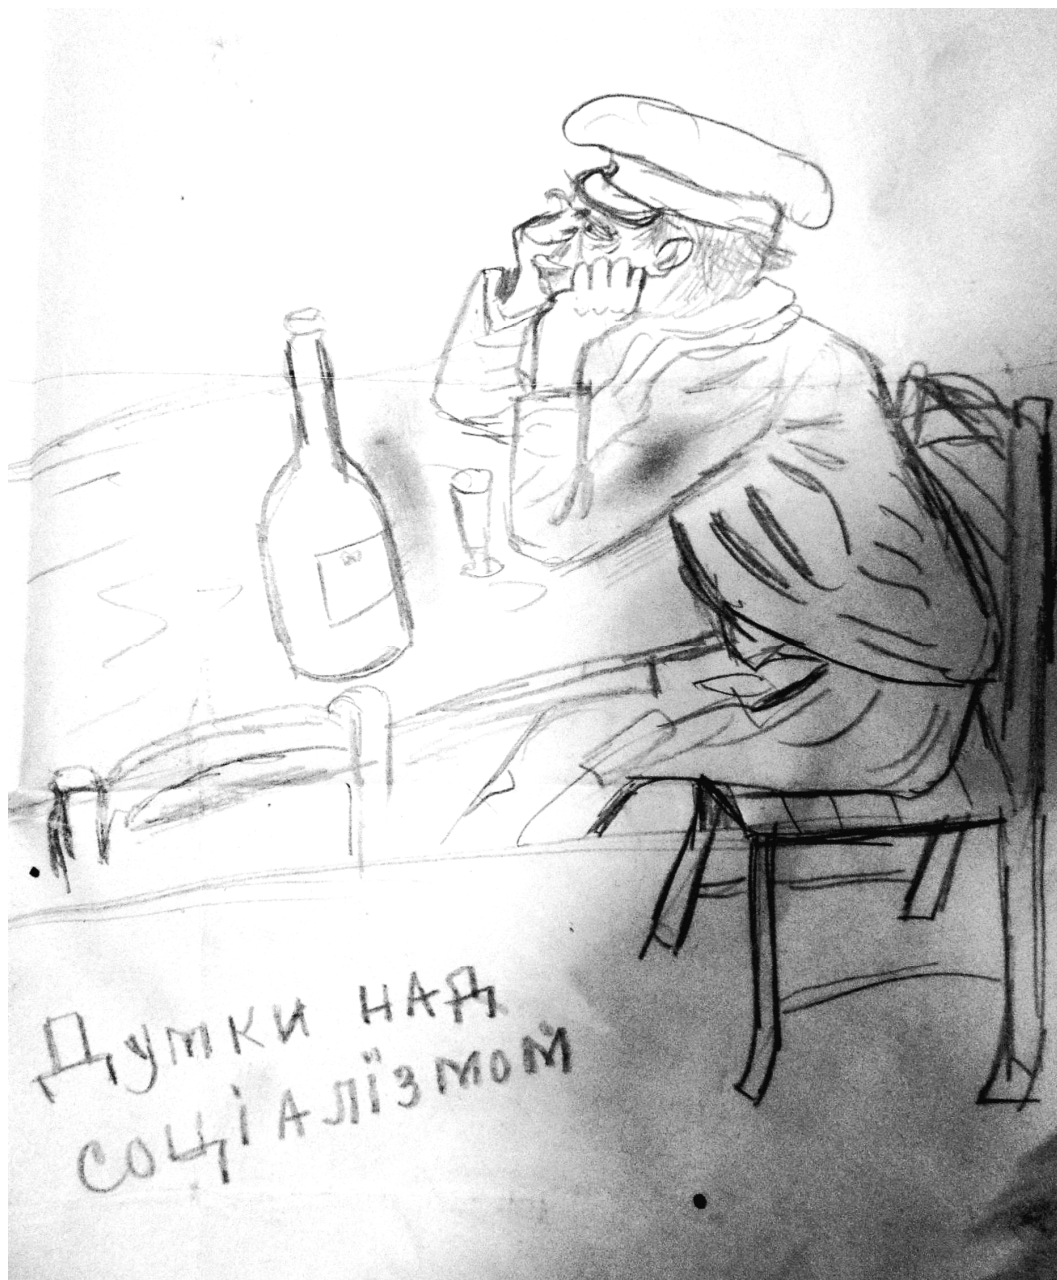 Думки над
соціалїзмом